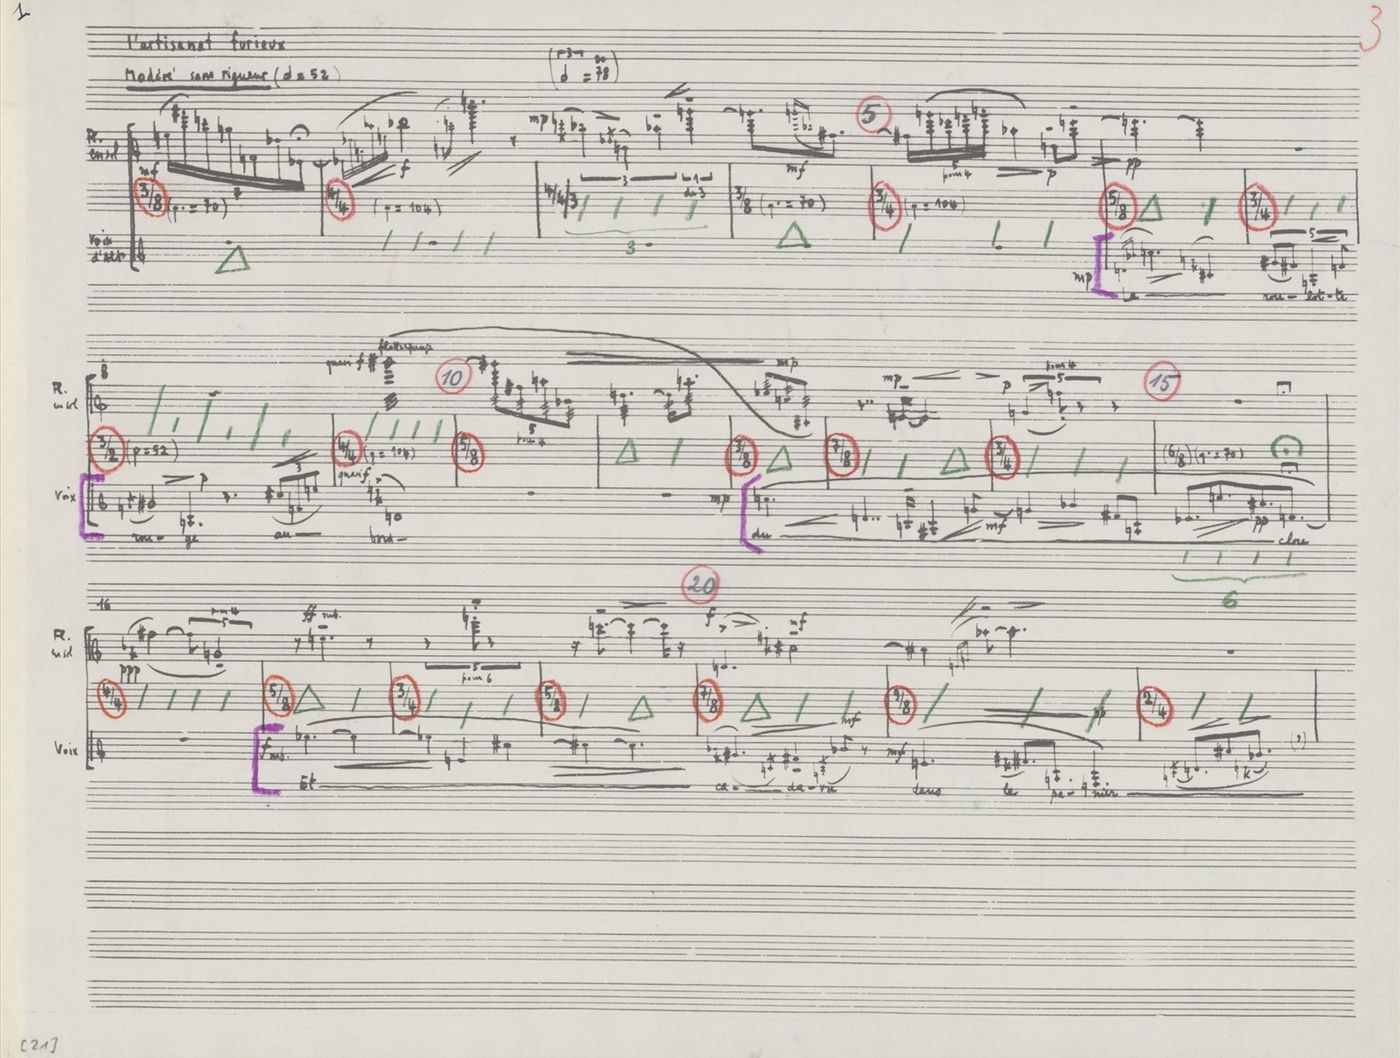 1
3
l'artisanat furieux
Modéré sans rigueur (𝅗𝅥 = 52)
( = 78)
R.
en sol
mp
5
mf
f
mf
pour 4
p
pp
3/8 ( = 70)
4/4 ( = 104)
4/4
3
3/8 ( = 70)
3/4 ( = 104)
5/8
3/4
Voix
d'Alto
3
5
mp
La rou - lot - te
8
quasi f
10
mp
mp
p
pour 4
5
15
R.
en sol
5
pour 4
3/2 ( = 52)
4/4 ( = 104)
5/8
3/8
7/8
3/4
(6/8) ( = 70)
quasi f
Voix
p
3
mp
mf
pp
rou - ge au bord
du clou
6
16
20
R.
en sol
pour 4
5
ff
f
mf
ppp
5
pour 6
4/4
5/8
3/4
5/8
7/8
9/8
2/4
pp
mf
Voix
f
mf
Et ca - da - vre dans le pa - nier
[21]